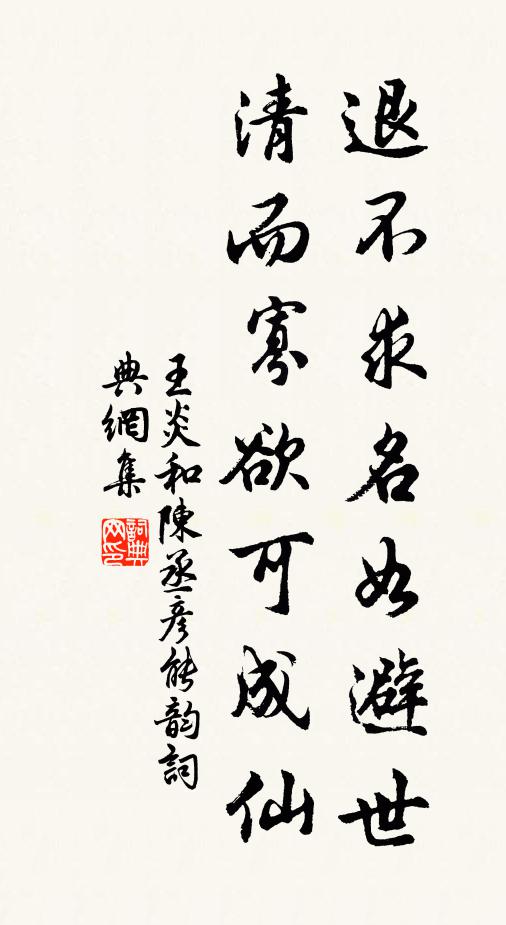 退不求名如避世
清而寡欲可成仙
王炎和陳丞彦能韵詞
典網集
詞典网印